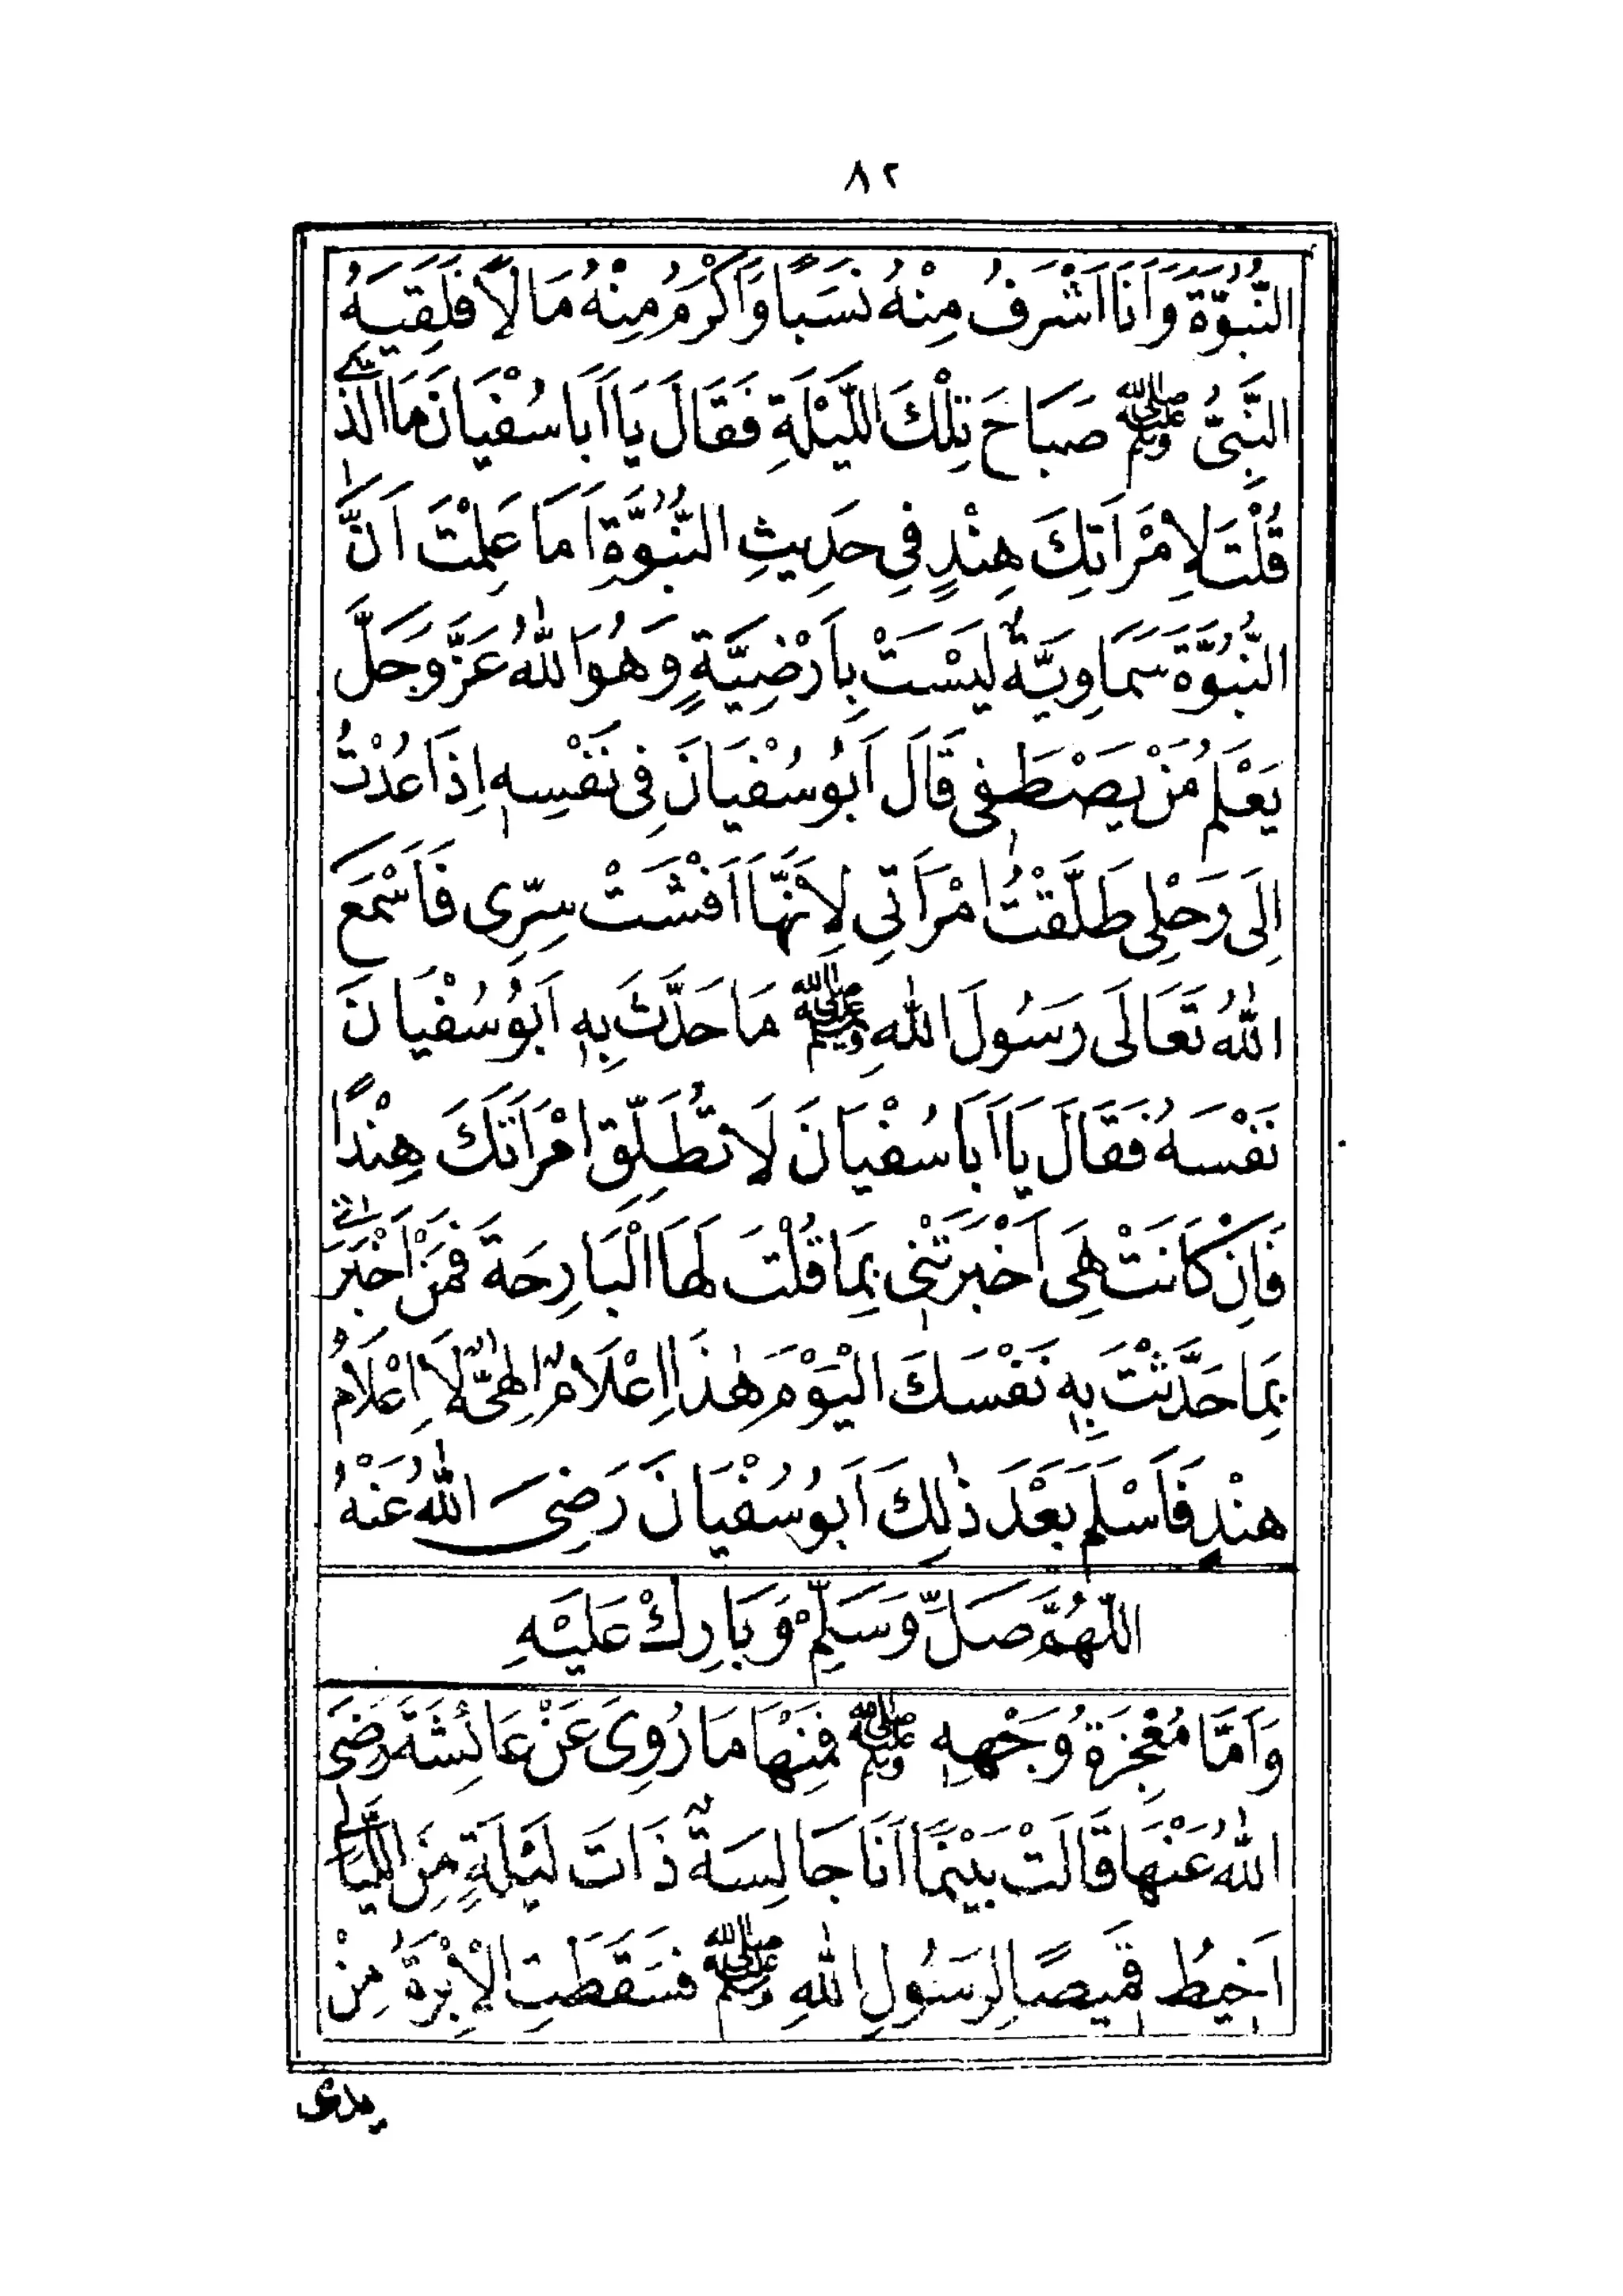 ٨٢
النُّبُوَّةَ وَاَنَا اَشْرَفُ مِنْهُ نَسَبًا وَاَكْرَمُ مِنْهُ مَالًا فَلَقِيَهُ
النَّبِىُّ ﷺ صَبَاحَ تِلْكَ اللَّيْلَةِ فَقَالَ يَا اَبَا سُفْيَانَ مَا الَّذِى
قُلْتَ لِامْرَاَتِكَ هِنْدٍ فِى حَدِيثِ النُّبُوَّةِ اَمَا عَلِمْتَ اَنَّ
النُّبُوَّةَ سَمَاوِيَّةٌ لَيْسَتْ بِاَرْضِيَّةٍ وَهُوَ اللّٰهُ عَزَّ وَجَلَّ
يَعْلَمُ مَنْ يَصْطَفِى قَالَ اَبُو سُفْيَانَ فِى نَفْسِهِ اِذَا عُدْتُ
اِلَى رَحْلِى طَلَّقْتُ امْرَاَتِى لِاَنَّهَا اَفْشَتْ سِرِّى فَاَسْمَعَ
اللّٰهُ تَعَالَى رَسُولَ اللّٰهِ ﷺ مَا حَدَّثَ بِهِ اَبُو سُفْيَانَ
نَفْسَهُ فَقَالَ يَا اَبَا سُفْيَانَ لَا تُطَلِّقِ امْرَاَتَكَ هِنْدًا
فَاِنْ كَانَتْ هِىَ اَخْبَرَتْنِى بِمَا قُلْتَ لَهَا الْبَارِحَةَ فَمَنْ اَخْبَرَنِى
بِمَا حَدَّثْتَ بِهِ نَفْسَكَ الْيَوْمَ هٰذَا اِعْلَامٌ اِلٰهِىٌّ لَا اِعْلَامُ
هِنْدٍ فَاَسْلَمَ بَعْدَ ذٰلِكَ اَبُو سُفْيَانَ رَضِىَ اللّٰهُ عَنْهُ
اللّٰهُمَّ صَلِّ وَسَلِّمْ وَبَارِكْ عَلَيْهِ
وَاَمَّا مُعْجِزَةُ وَجْهِهِ ﷺ فَمِنْهَا مَا رُوِىَ عَنْ عَائِشَةَ رَضِىَ
اللّٰهُ عَنْهَا قَالَتْ بَيْنَمَا اَنَا جَالِسَةٌ ذَاتَ لَيْلَةٍ مِنَ اللَّيَالِى
اَخِيطُ قَمِيصًا لِرَسُولِ اللّٰهِ ﷺ فَسَقَطَتِ الْاِبْرَةُ مِنْ
يدى